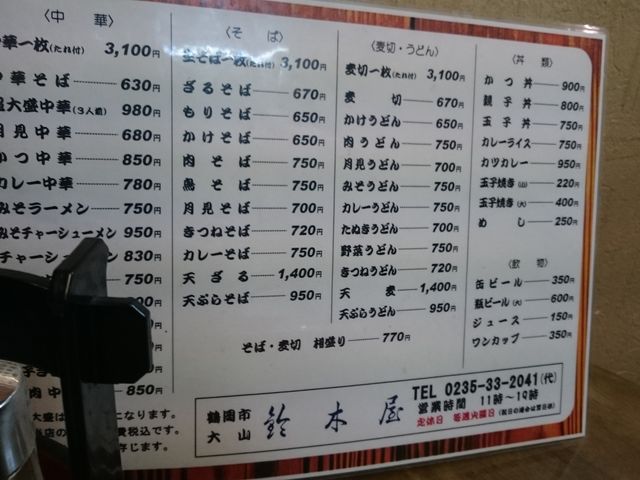 〈中華〉
華一枚(たれ付) 3,100円
華そば 630円
大盛中華(3人前) 980円
月見中華 680円
かつ中華 850円
カレー中華 780円
みそラーメン 750円
みそチャーシューメン 950円
チャーシューメン 830円
750円
肉中 850円
〈そば〉
生そば一枚(たれ付) 3,100円
ざるそば 670円
もりそば 650円
かけそば 650円
肉そば 750円
鳥そば 750円
月見そば 700円
きつねそば 720円
カレーそば 750円
天ざる 1,400円
天ぷらそば 950円
〈麦切・うどん〉
麦切一枚(たれ付) 3,100円
麦切 670円
かけうどん 650円
肉うどん 750円
月見うどん 700円
みそうどん 750円
カレーうどん 750円
たぬきうどん 700円
野菜うどん 750円
きつねうどん 720円
天麦 1,400円
天ぷらうどん 950円
そば・麦切 相盛り 770円
〈丼類〉
かつ丼 900円
親子丼 800円
玉子丼 750円
カレーライス 750円
カツカレー 950円
玉子焼き(小) 220円
玉子焼き(大) 400円
めし 250円
〈飲物〉
缶ビール 350円
瓶ビール(大) 600円
ジュース 150円
ワンカップ 350円
大盛は
になります。
当店の
費税込です。
存じます。
鶴岡市
大山
鈴木屋
TEL 0235-33-2041(代)
営業時間 11時～19時
定休日 毎週火曜日(祝日の場合は翌日休)